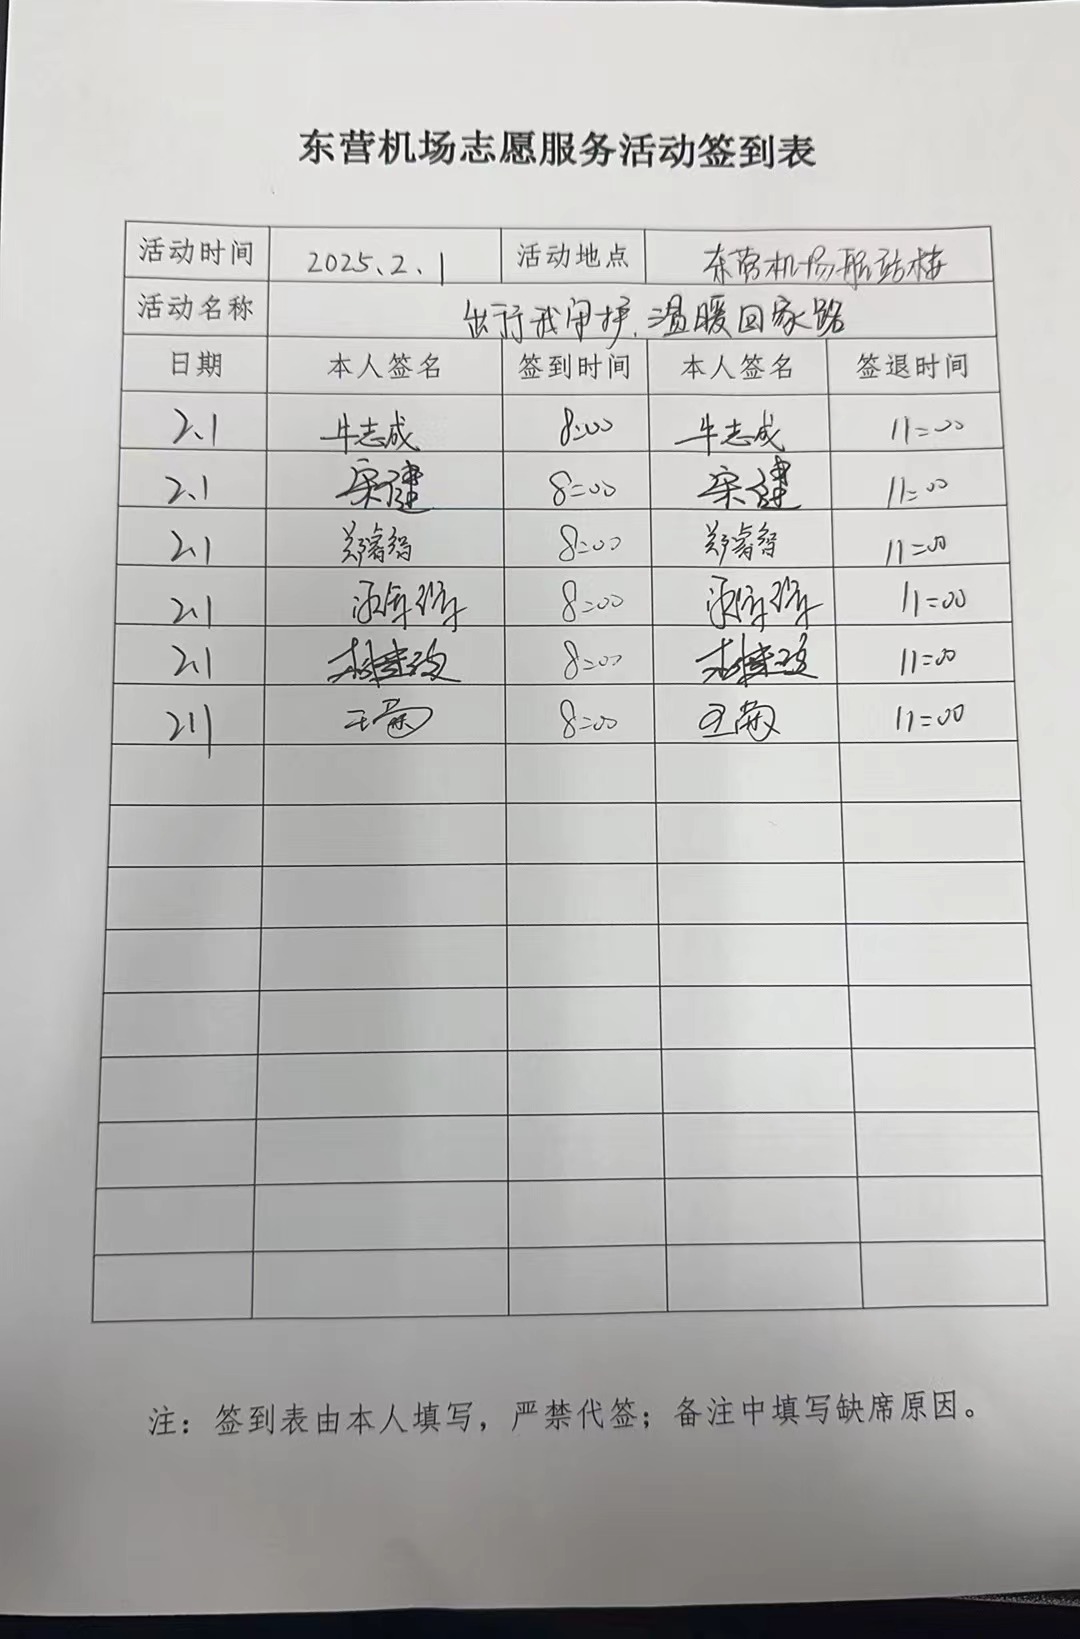 东营机场志愿服务活动签到表
活动时间 2025.2.1 活动地点 东营机场航站楼
活动名称 出行我守护,温暖回家路
日期 本人签名 签到时间 本人签名 签退时间
2.1 牛志成 8:00 牛志成 11:00
2.1 宋健 8:00 宋健 11:00
2.1 郑睿智 8:00 郑睿智 11:00
2.1 8:00 11:00
2.1 8:00 11:00
2.1 王菊 8:00 王菊 11:00
注：签到表由本人填写，严禁代签；备注中填写缺席原因。